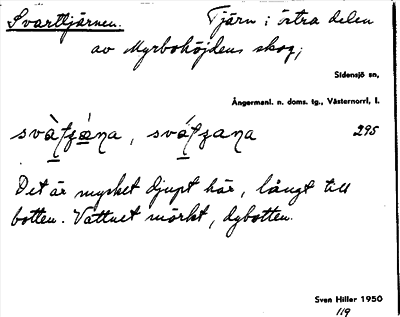 Svarttjärnen. Tjärn i östra delen
av Myrbohöjdens skog;
Sidensjö sn,
Ångermanl. n. doms. tg., Västernorrl. l.
295
Det är mycket djupt här, långt till
botten. Vattnet mörkt, dybotten.
Sven Hiller 1950
119